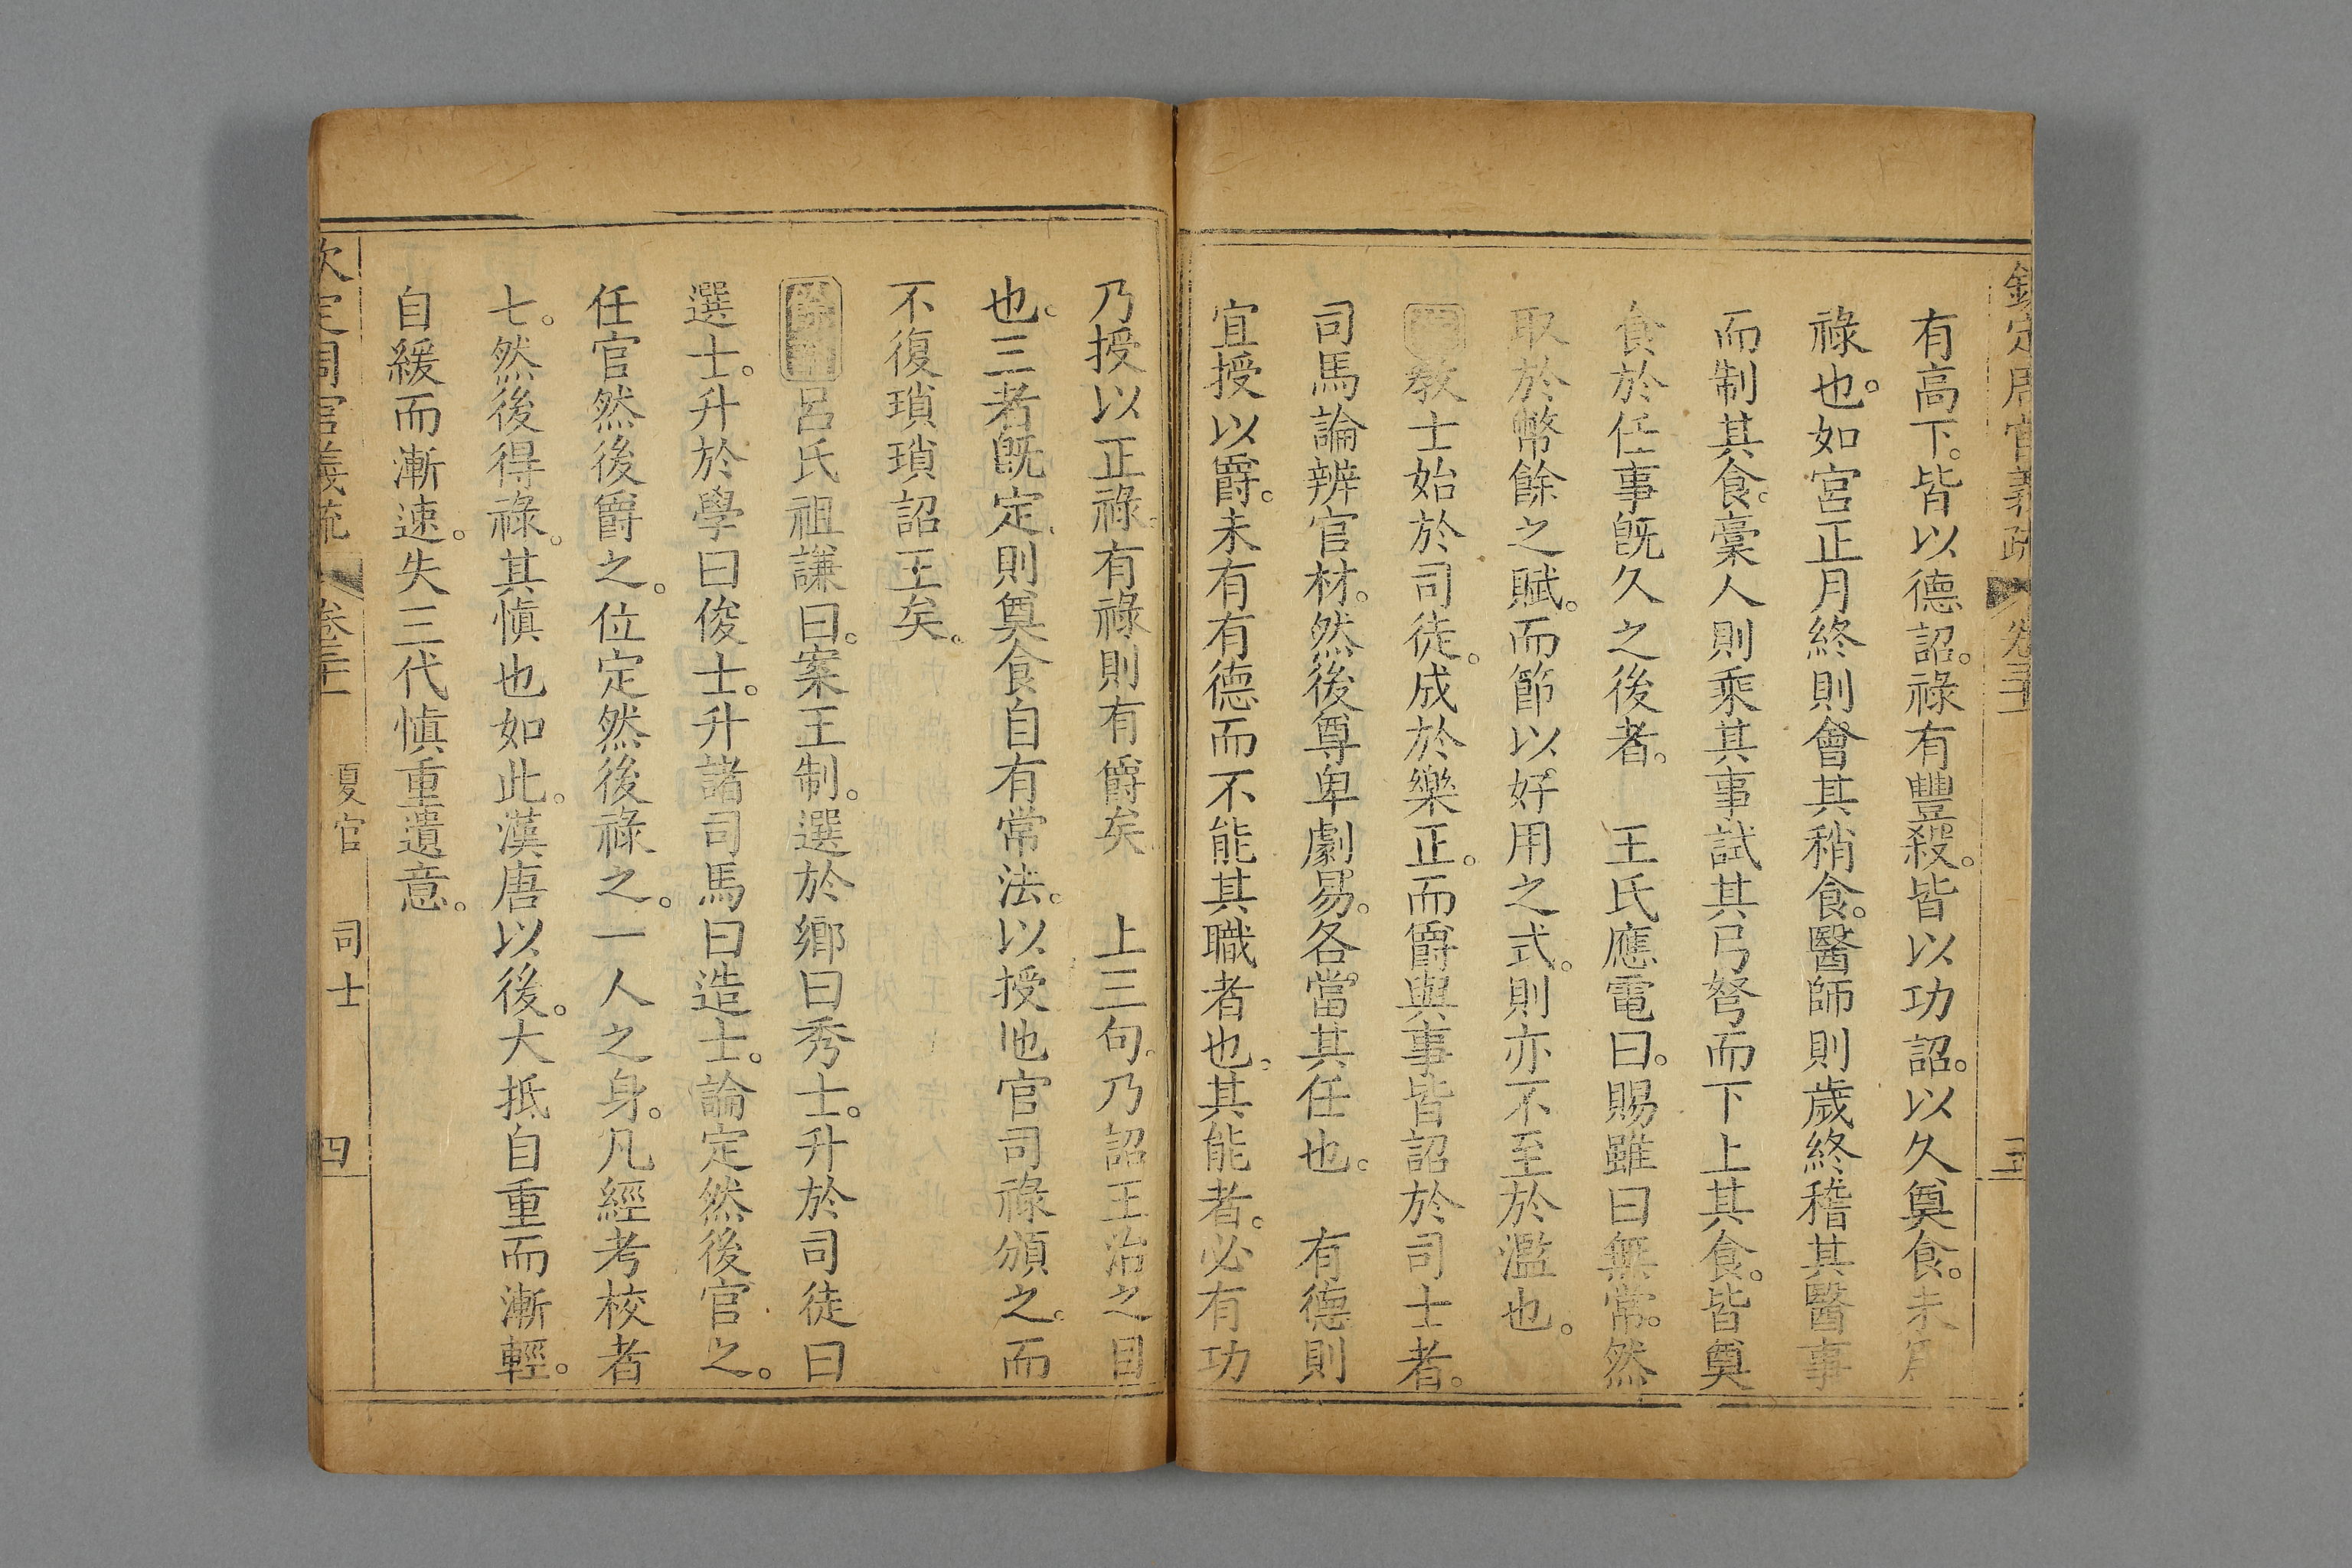 欽定周官義疏 卷三十一
有高下。皆以德詔。祿有豐殺。皆以功詔。以久奠食。未
祿也。如宮正月終則會其稍食。醫師則歲終稽其醫事
而制其食。稾人則乘其事試其弓弩而下上其食。皆奠
食於任事旣久之後者。 王氏應電曰。賜雖曰無常。然
取於幣餘之賦。而節以好用之式。則亦不至於濫也。
教士始於司徒。成於樂正。而爵與事皆詔於司士者。
司馬論辨官材。然後尊卑劇易。各當其任也。 有德則
宜授以爵。未有有德而不能其職者也。其能者。必有功
乃授以正祿。有祿則有爵矣 上三句。乃詔王治之目
也。三者旣定。則奠食自有常法。以授他官司祿頒之。而
不復瑣瑣詔王矣。
餘論 呂氏祖謙曰。案王制。選於鄉曰秀士。升於司徒曰
選士。升於學曰俊士。升諸司馬曰造士。論定然後官之。
任官然後爵之。位定然後祿之。一人之身。凡經考校者
七。然後得祿。其愼也如此。漢唐以後。大抵自重而漸輕。
自緩而漸速。失三代愼重遺意。
欽定周官義疏 卷三十一 夏官 司士 四